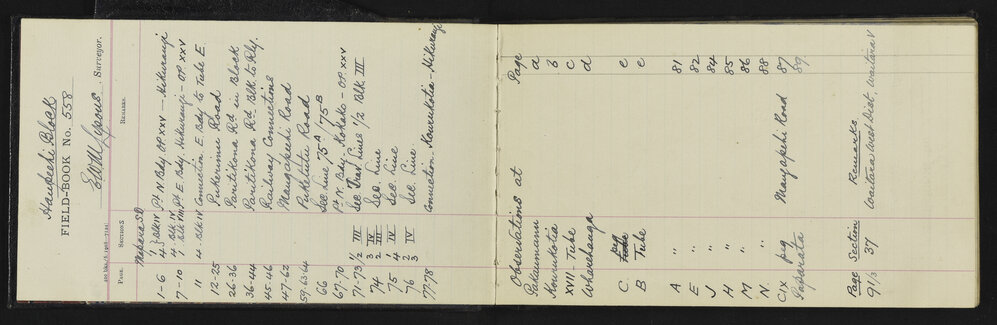 Haupeehi Block
FIELD-BOOK No. 558
Surveyor.
PAGE. SECTIONS REMARKS.
Mapara SD
1-6 Blk IV Pt N Bdy OP XXV - Hikurangi
7-10 4 Blk IV Blk VIII Pt E Bdy. Hikurangi - OP. XXV
11 4 Blk IV Connection E Bdy to Tube E
12-25 Pukerimu Road
26-36 Paritikona Rd in Block
36-44 Paritikona Rd. Blk. to Rly.
45-46 Railway Connections
47-62 Mangapeehi Road
59.63-64 Puketutu Road
66 See Line 75A 175B
67-70 Pt N Bdy. Kokako - OP. XXV
71-73 1/2 III Sec Trav. Lines 1/2 Blk III
74 Sec. Line
75 1/4 IV Sec. Line
76 2/3 IV Sec. Line
77-78 Connection. Kourukotia - Hikurangi
Observations at Page
Pukeumanu a
Kourukotia b
XVII Tube c
Wharehanga d
C peg e
B Tube e
A " 81
E " 82
J " 84
H " 85
M " 86
N " 88
CIX peg Mangapeehi Road 87
Paparata 89
Page Section Remarks
91/3 37 Waitara West Dist, Waitara V